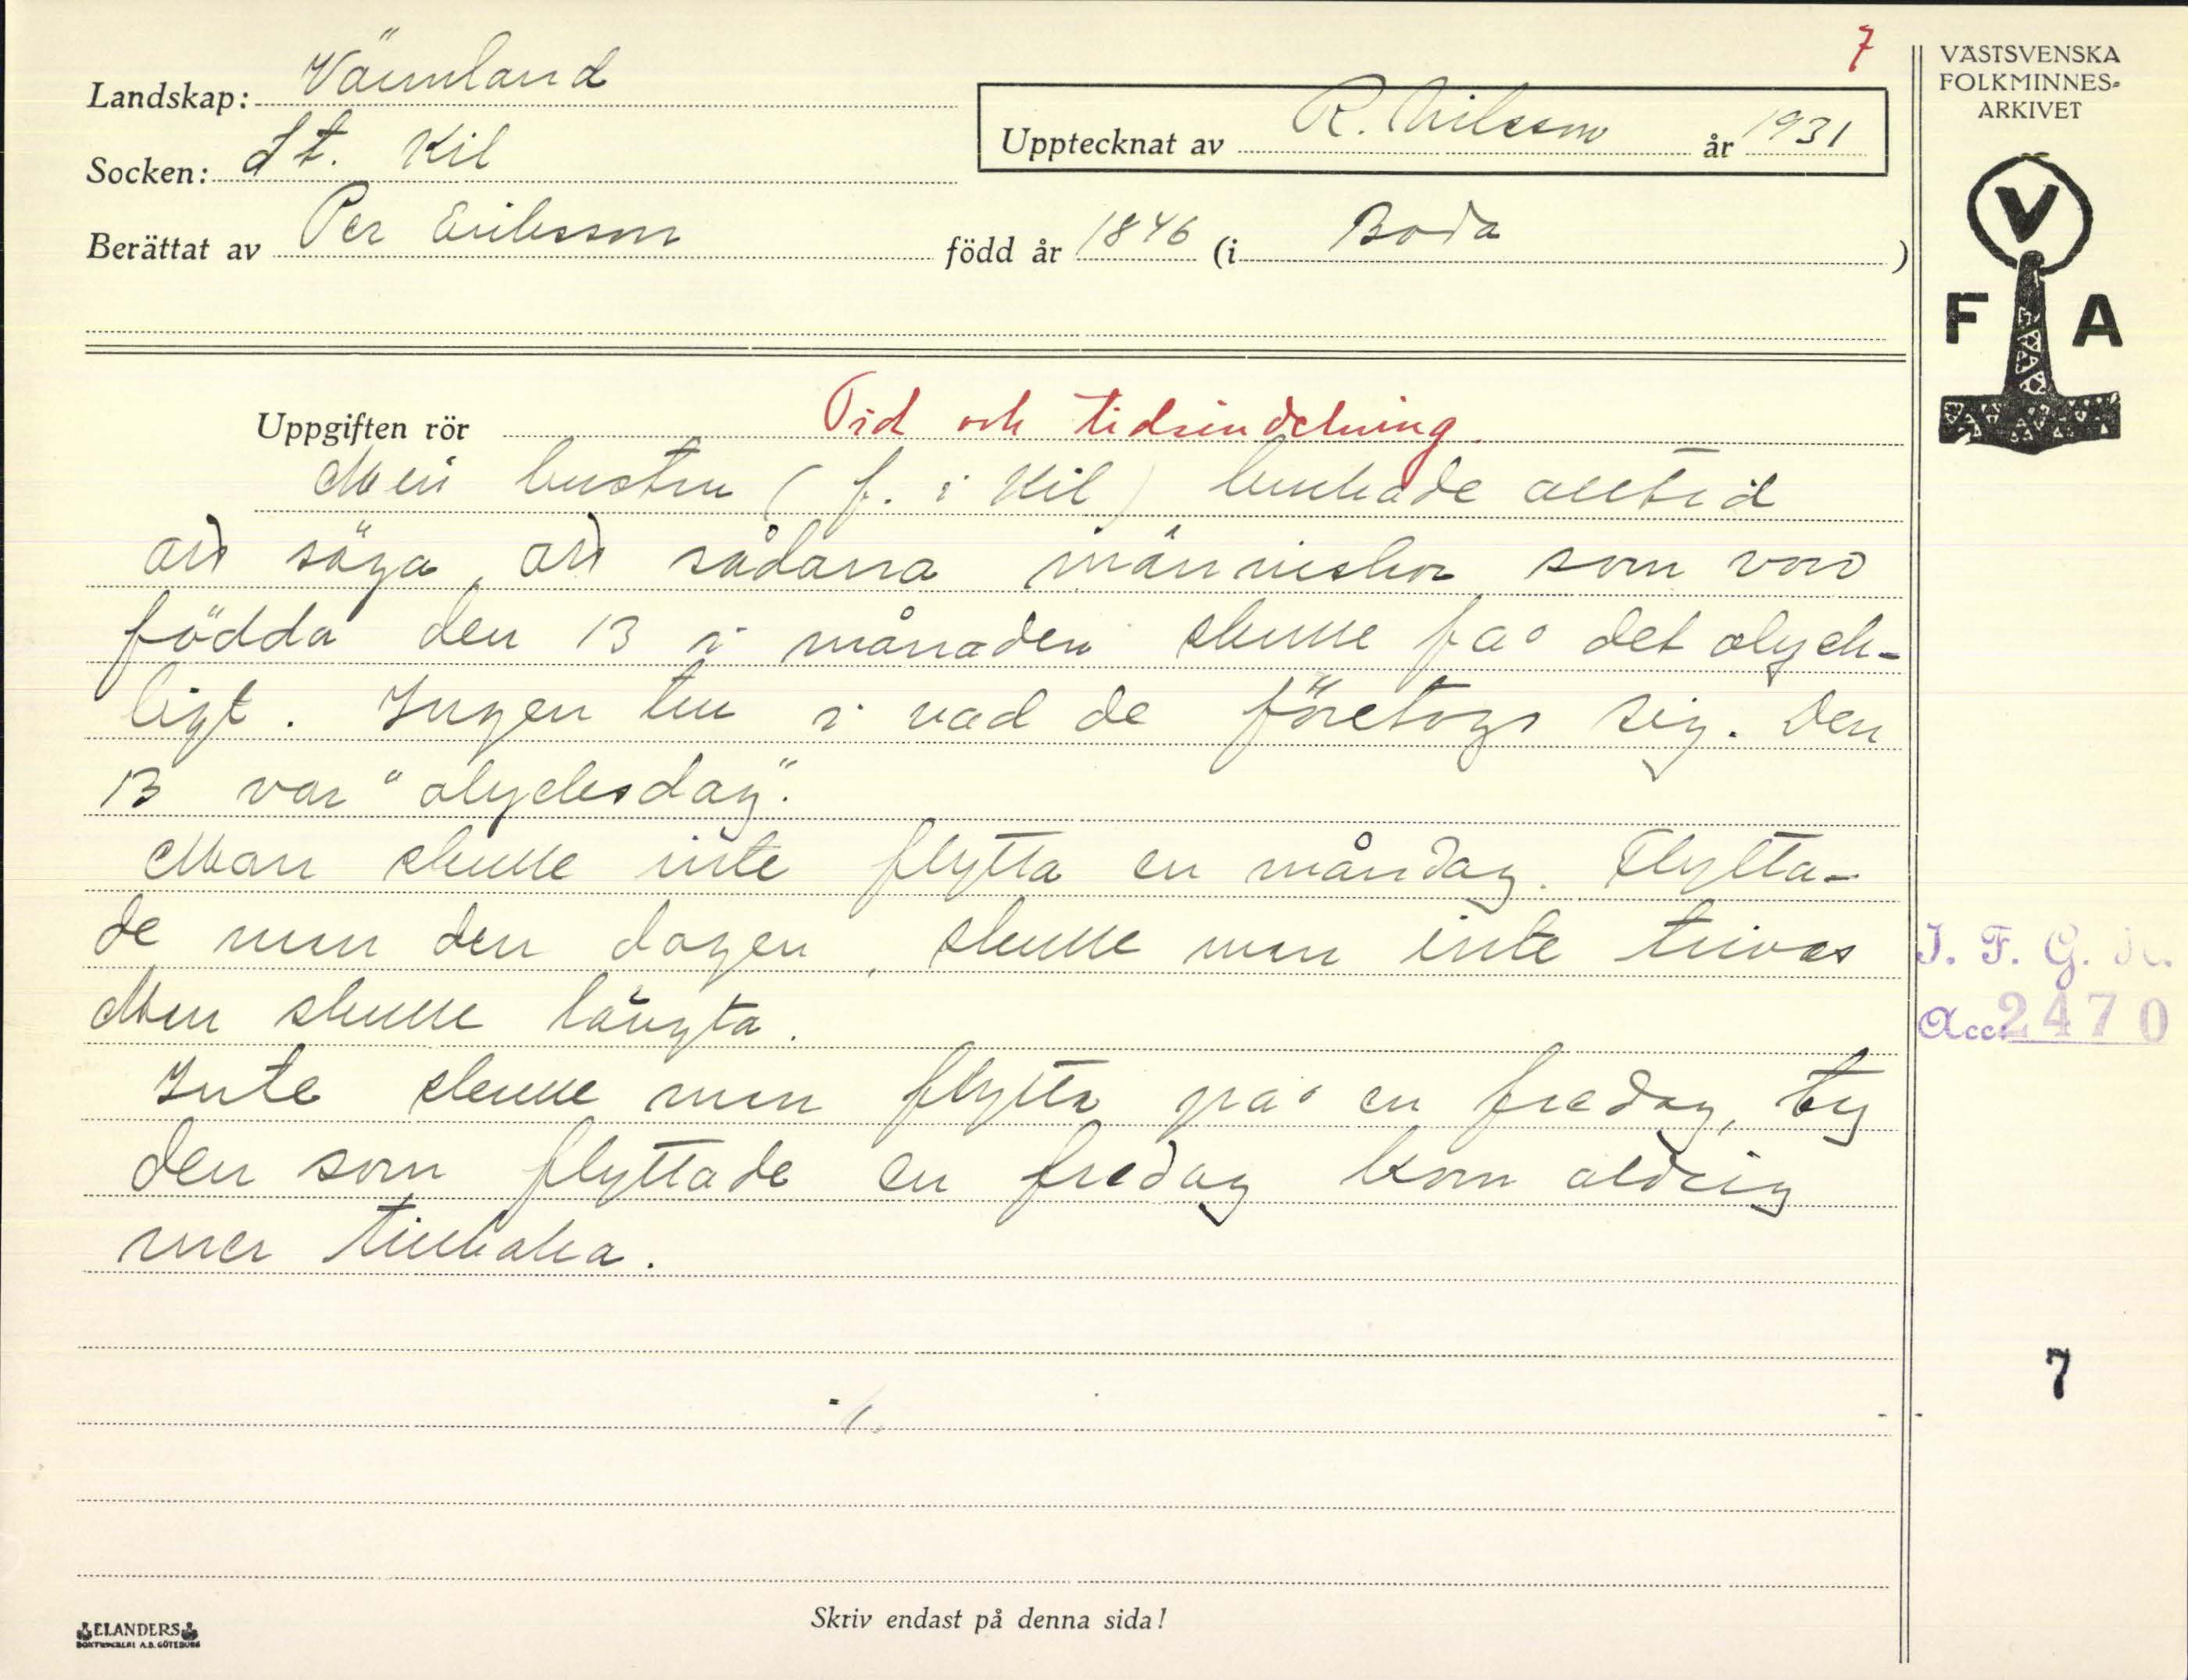 7
Landskap: Värmland
Socken: St. Kil
Upptecknat av R. Nilsson år 1931
Berättat av Per Eriksson född år 1846 (i Boda )
VÄSTSVENSKA
FOLKMINNES-
ARKIVET
V
F A
Uppgiften rör Tid och tidsindelning.
Min hustru (f. i Kil) brukade alltid
att säga, att sådana människor som voro
födda den 13 i månaden skulle få det olyck-
ligt. Ingen tur i vad de företogo sig. Den
13 var "olycksdag".
Man skulle inte flytta en måndag. Flytta-
de man den dagen, skulle man inte trivas
Man skulle längta.
Inte skulle man flytta på en fredag, ty
den som flyttade en fredag kom aldrig
mer tillbaka.
I. F. G. H.
Acc. 2470
7
Skriv endast på denna sida!
ELANDERS
BOKTRYCKERI A.B. GÖTEBORG